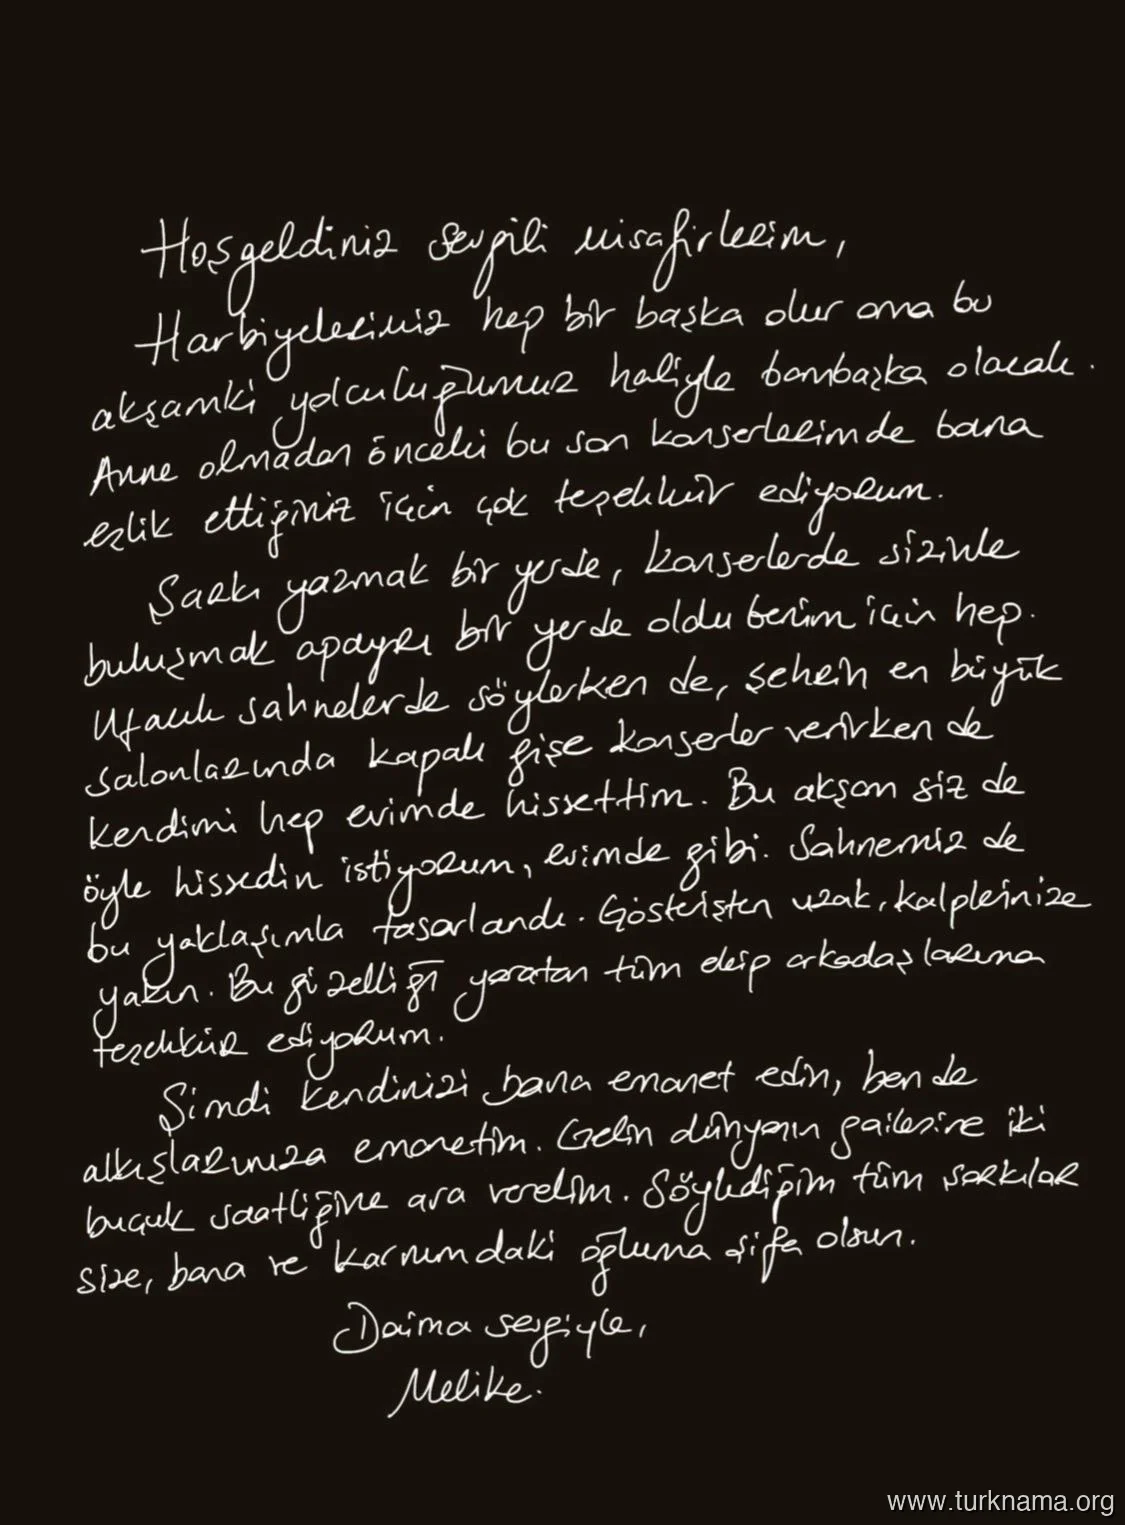 Hoşgeldiniz sevgili misafirlerim,
Harbiyelerimiz hep bir başka olur ama bu
akşamki yolculuğumuz haliyle bambaşka olacak.
Anne olmadan önceki bu son konserlerimde bana
eşlik ettiğiniz için çok teşekkür ediyorum.
Şarkı yazmak bir yerde, konserlerde sizinle
buluşmak apayrı bir yerde oldu benim için hep.
Ufacık sahnelerde söylerken de, şehrin en büyük
salonlarında kapalı gişe konserler verirken de
kendimi hep evimde hissettim. Bu akşam siz de
öyle hissedin istiyorum, evimde gibi. Sahnemiz de
bu yaklaşımla tasarlandı. Gösterişten uzak, kalplerinize
yakın. Bu güzelliği yaratan tüm ekip arkadaşlarıma
teşekkür ediyorum.
Şimdi kendinizi bana emanet edin, ben de
alkışlarınıza emanetim. Gelin dünyanın gailesine iki
buçuk saatliğine ara verelim. Söylediğim tüm şarkılar
size, bana ve karnımdaki oğluma şifa olsun.
Daima sevgiyle,
Melike.
www.turknama.org